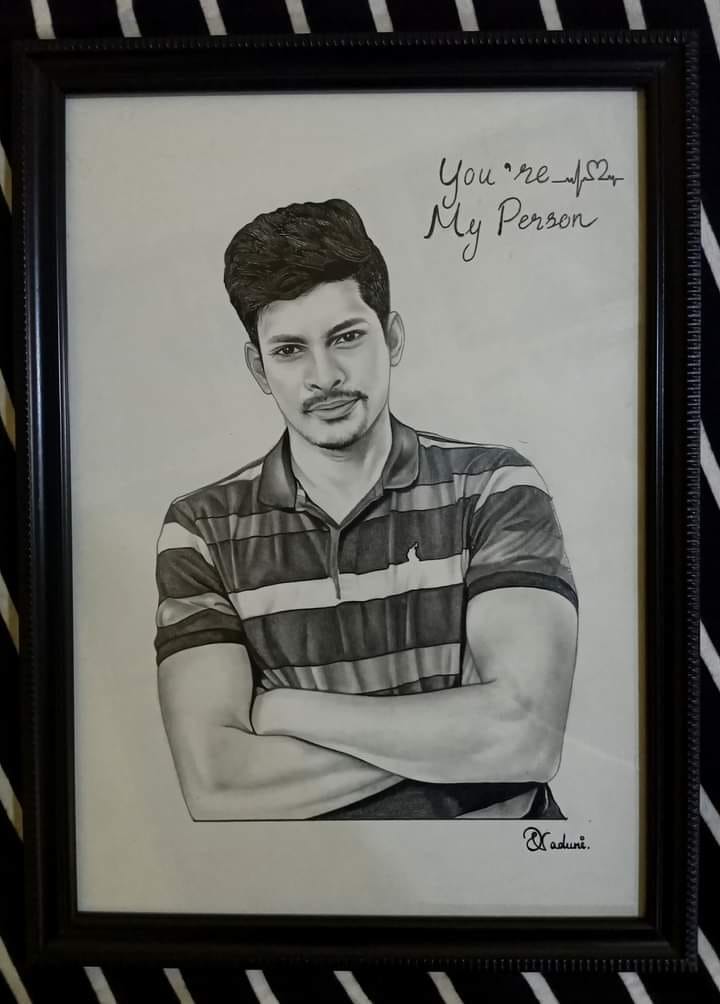 You're
My Person
Naduni.